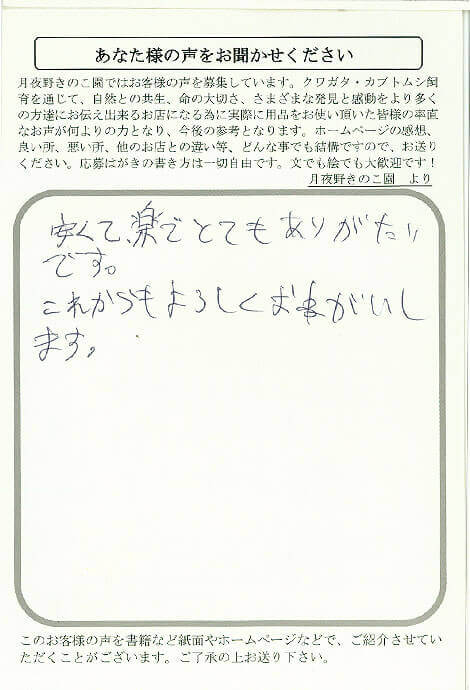 あなた様の声をお聞かせください
月夜野きのこ園ではお客様の声を募集しています。クワガタ・カブトムシ飼
育を通じて、自然との共生、命の大切さ、さまざまな発見と感動をより多く
の方達にお伝え出来るお店になる為に実際に用品をお使い頂いた皆様の率直
なお声が何よりの力となり、今後の参考となります。ホームページの感想、
良い所、悪い所、他のお店との違い等、どんな事でも結構ですので、お送り
ください。応募はがきの書き方は一切自由です。文でも絵でも大歓迎です！
月夜野きのこ園　より
安くて、楽でとてもありがたい
です。
これからもよろしくおねがいし
ます。
このお客様の声を書籍など紙面やホームページなどで、ご紹介させてい
ただくことがございます。ご了承の上お送り下さい。